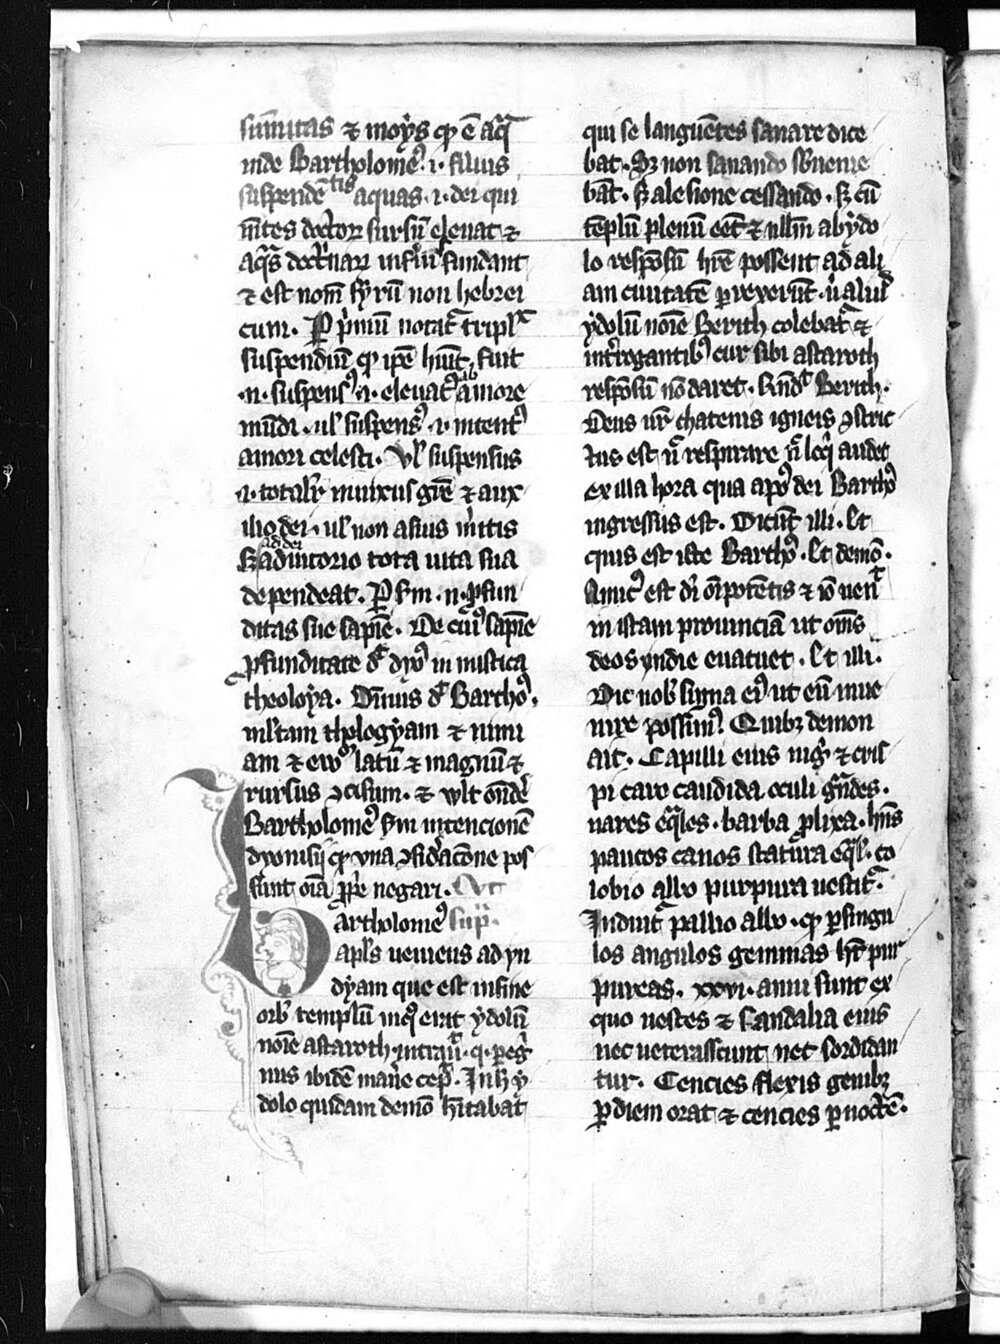 sum̄itas ⁊ moẏs qď ē aq̄
inde Bartholomeꝰ .i. filius
suspendē tis aquas .i. dei qui
m̄tes doctoꝝ sursū eleuat ⁊
aq̄s doctͥnaꝝ inferiꝰ fundant
⁊ est nom̄ sẏrū non hebrei
cum. Ꝑ pͥmū notatᷣ triplex
suspendiū qď ip̄e hūit, fuit
.n. suspensꝰ .i. eleuatꝰ ab amore
mūdi . ul̕ suspensꝰ .i. intentꝰ
amori celesti. Vl̕ suspensus
.i. totalr̕ innixus gr̄e ⁊ aux
ilio dei . ul̕ non asius ini̕tis
sꝫ ad dei adiutorio tota uita sua
dependeat. Ꝑ scd̄m .n. ꝓfun
ditas sue sapiē. De cuiꝰ sapīe
ꝓfunditate dͨ dyoꝰ in mistica
theoloẏa. Diuīnus dͨ Bartħꝰ,
ml̕tam thologẏam ⁊ mini
am ⁊ ewꝰ latū ⁊ magnū ⁊
rursus ꝯcisum. ⁊ wlt ond̄e
Bartholomeꝰ scd̄m intencionē
dyonisij qď vna ꝯsideracōne pos
sunt oīa ꝓpe negari.
Bartholomeꝰ
apl̕s ueniens ad yn
dyam que est in fine
orb̕ templū in qͦ erat ẏdolū
noīe astaroth intᷓuit .q. peg̕
nus ibidē manēe cep̄. In h̕ ẏ
dolo quidam demō hītabat
qui se languētes sanare dice
bat . Sꝫ non sanando sb̕uenie
bāt . Sꝫ a lesione cessando . Sꝫ cū
tēplū plenū eēt ⁊ nllm̄ ab ẏdo
lo respōsū hr̄e possent ad ali
am ciuitatē ꝑrexerūt . u̕ aliud
ẏdolū noīe Berith colebatᷣ ⁊
int̕rogantibꝰ cur sibi astaroth
respōsū nō daret . Rn̄dͭ Berith .
Deus ur̄ chatenis igneis ꝯstric
tus est ut n̄ respirare n̄ loq̕ audet
ex illa hora qua apꝰ dei Bartħꝰ
ingressus est . Dicūt illi . Et
quis est iste Bartħꝰ . Et demō .
Amicꝰ est di̕ om̄ipotētis ⁊ iō uen̄
in istam prouinciā ut om̄s
deos yndie euacuet . Et illi .
Dic nob̕ signa eiꝰ ut eū inue
nire possimꝰ. Quibꝫ demon
ait . Capilli eius nig̕ ⁊ cris
pi caro candida oculi gͣndes .
nares eq̄les . barba ꝓlixa . hn̄s
paucos canos statura eq̄l . co
lobio albo purpura uestitᷣ.
Induitᷣ pallio albo . qď ꝑ singu
los angulos gemmas ht̄ pur
pureas . xxvi . anni sunt ex
quo uestes ⁊ sandalia eius
nec ueterascunt nec sordidan
tur . Cencies flexis genibꝫ
ꝑ diem orat ⁊ cencies ꝑ noctē .